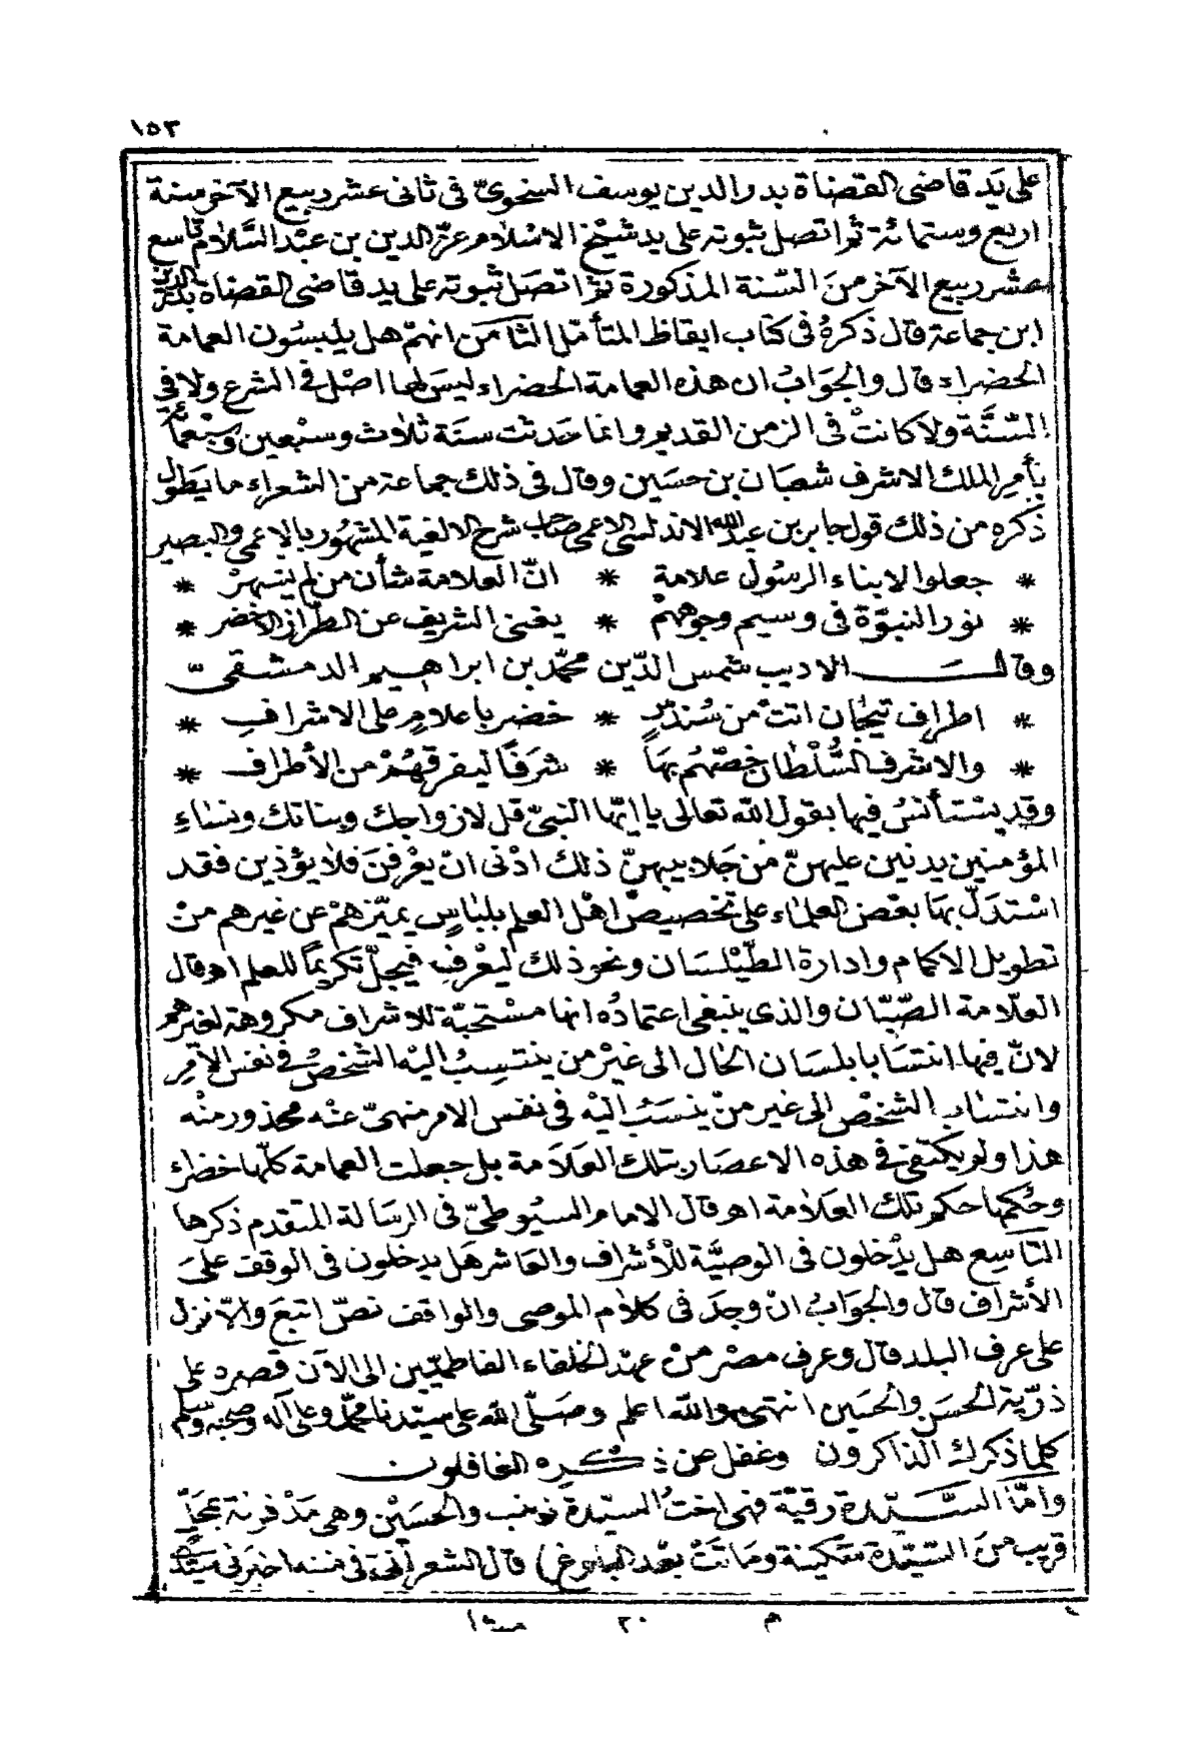 ١٥٣
على يد قاضى القضاة بدر الدين يوسف السنجوىّ فى ثانى عشر ربيع الآخر سنة
اربع وستمائة ثم اتصل ثبوته على يد شيخ الاسلام عز الدين بن عبد السَّلام تاسع
عشر ربيع الآخر من السّنة المذكورة ثم اتصل ثبوته على يد قاضى القضاة بدر الدين
ابن جماعة قال ذكرهُ فى كتاب ايقاظ المتأمّل الثامن انهمّ هل يلبسُون العمامة
الخضراء قال والجوَابُ ان هذه العمامة الخضراء ليسَ لها اصْل فى الشرع ولا فى
السُّنَّة ولا كانتْ فى الزمن القديم وانما حَدثت سنَة ثلاث وسبْعين وسبْعمائة
بأمر الملك الاشرف شعبَان بن حسَين وقال فى ذلك جماعة من الشعراء ما يَطول
ذكره من ذلك قول جابر بن عبد الله الاندلسى الاعمى صاحب شرح الالفية المشهُور بالاعمى والبصير
* جعلوا لابناء الرسُول علامة * انّ العلامة شأن من لم يشهرْ *
* نور النبوّة فى وسيم وجوههمْ * يغنى الشريف عن الطّراز الاخضر *
وقالَ الاديب شمس الدّين محمّد بن ابراهيم الدمشقىّ
* اطراف تيجان اتتْ من سُندسٍ * خضر باعلامٍ على الاشرافِ *
* والاشرف السُّلْطان خصّهُم بهَا * شرَفًا ليفرقهُمْ من الأطراف *
وقد يسْتأنسُ فيها بقول الله تعالى يا ايّها النبىّ قل لازواجك وبناتك ونساءِ
المؤمنين يدنين عليهنّ من جَلابيبهنّ ذلك ادْنى انّ يعْرفنَ فلا يؤذين فقد
اسْتدَلّ بهَا بعْض العلمَاء على تخصيصْ اهْل العلم بلبَاسٍ يميّزهمْ عن غيرهم منْ
تطويل الاكمام وادارة الطّيْلسَان ونحو ذلك ليعْرف فيجلّ تكريمًا للعلم اهـ وقال
العلّامة الصّبّان والذى ينبغى اعتمادُه انها مسْتحبّة للاشراف مكروهة لغيرهم
لانّ فيها انتسَابا بلسَان الحَال الى غيْر من ينتسِبُ اليْه الشخصُ فى نفس الامْر
وانتسَاب الشخصْ الى غير منْ ينسَبُ اليْه فى نفس الامر منهىّ عنْه محذور منْه
هذا ولو يكتفى فى هذه الاعصار بتلك العَلَامة بل جعلت العمامة كلّها خضراء
وحُكمها حكم تلك العَلامة اهـ قال الامام السيُوطىّ فى الرسَالة المتقدم ذكرها
التاسِع هل يدْخلون فى الوصيَّة للْأشراف والعَاشر هَل يدخلون فى الوقف علىَ
الأشراف قال والجوَابُ انْ وجدَ فى كلام الموصى والواقف نصّ اتبعَ والّا نزل
على عرف البلد قال وعرف مصْر منْ عهْد الخلفاء الفاطميّين الى الآن قصره على
ذرّية الحسَن والحسَين انتهى والله اعلم وصَلّى الله على سيّدنا محمّد وعلى آله وصحبه وسلم
كلما ذكرك الذاكرون وغفل عن ذكره الغافلون
وامّا السَّيّدة رقيّة فهى اختُ السيّدة زينب والحسَيْن وهى مَدْفونة بمحَلّ
قريب منَ السّيّدة سَكينة ومَاتَتْ بعْد البلوغ) قال الشعرانى فى مننه اخبرنى سيّدى
٢٠ م